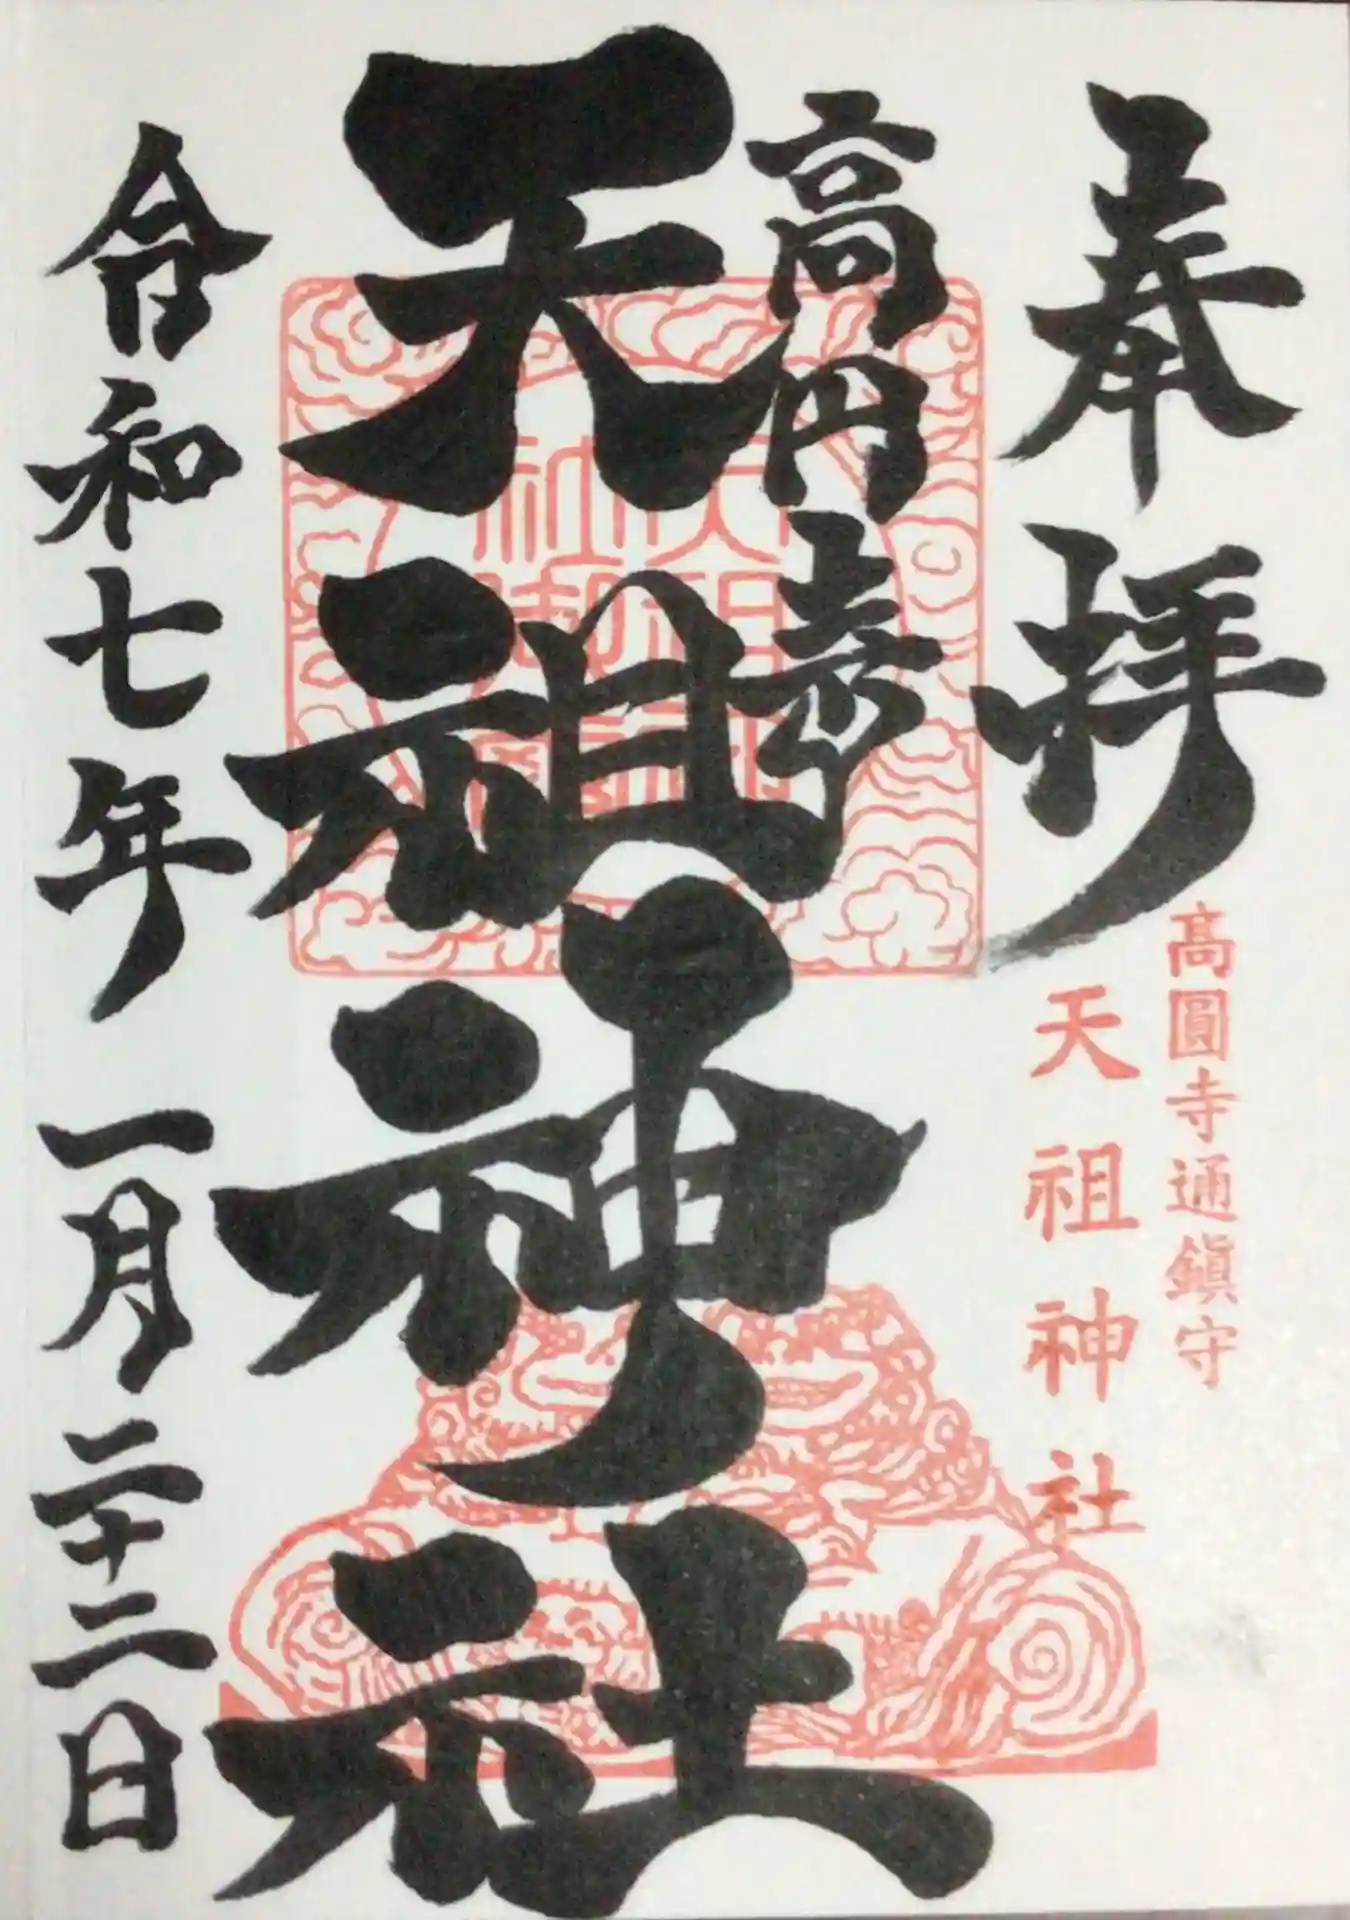 奉拝
高圓寺通鎮守
天祖神社
高円寺
天祖神社
令和七年 一月二十二日